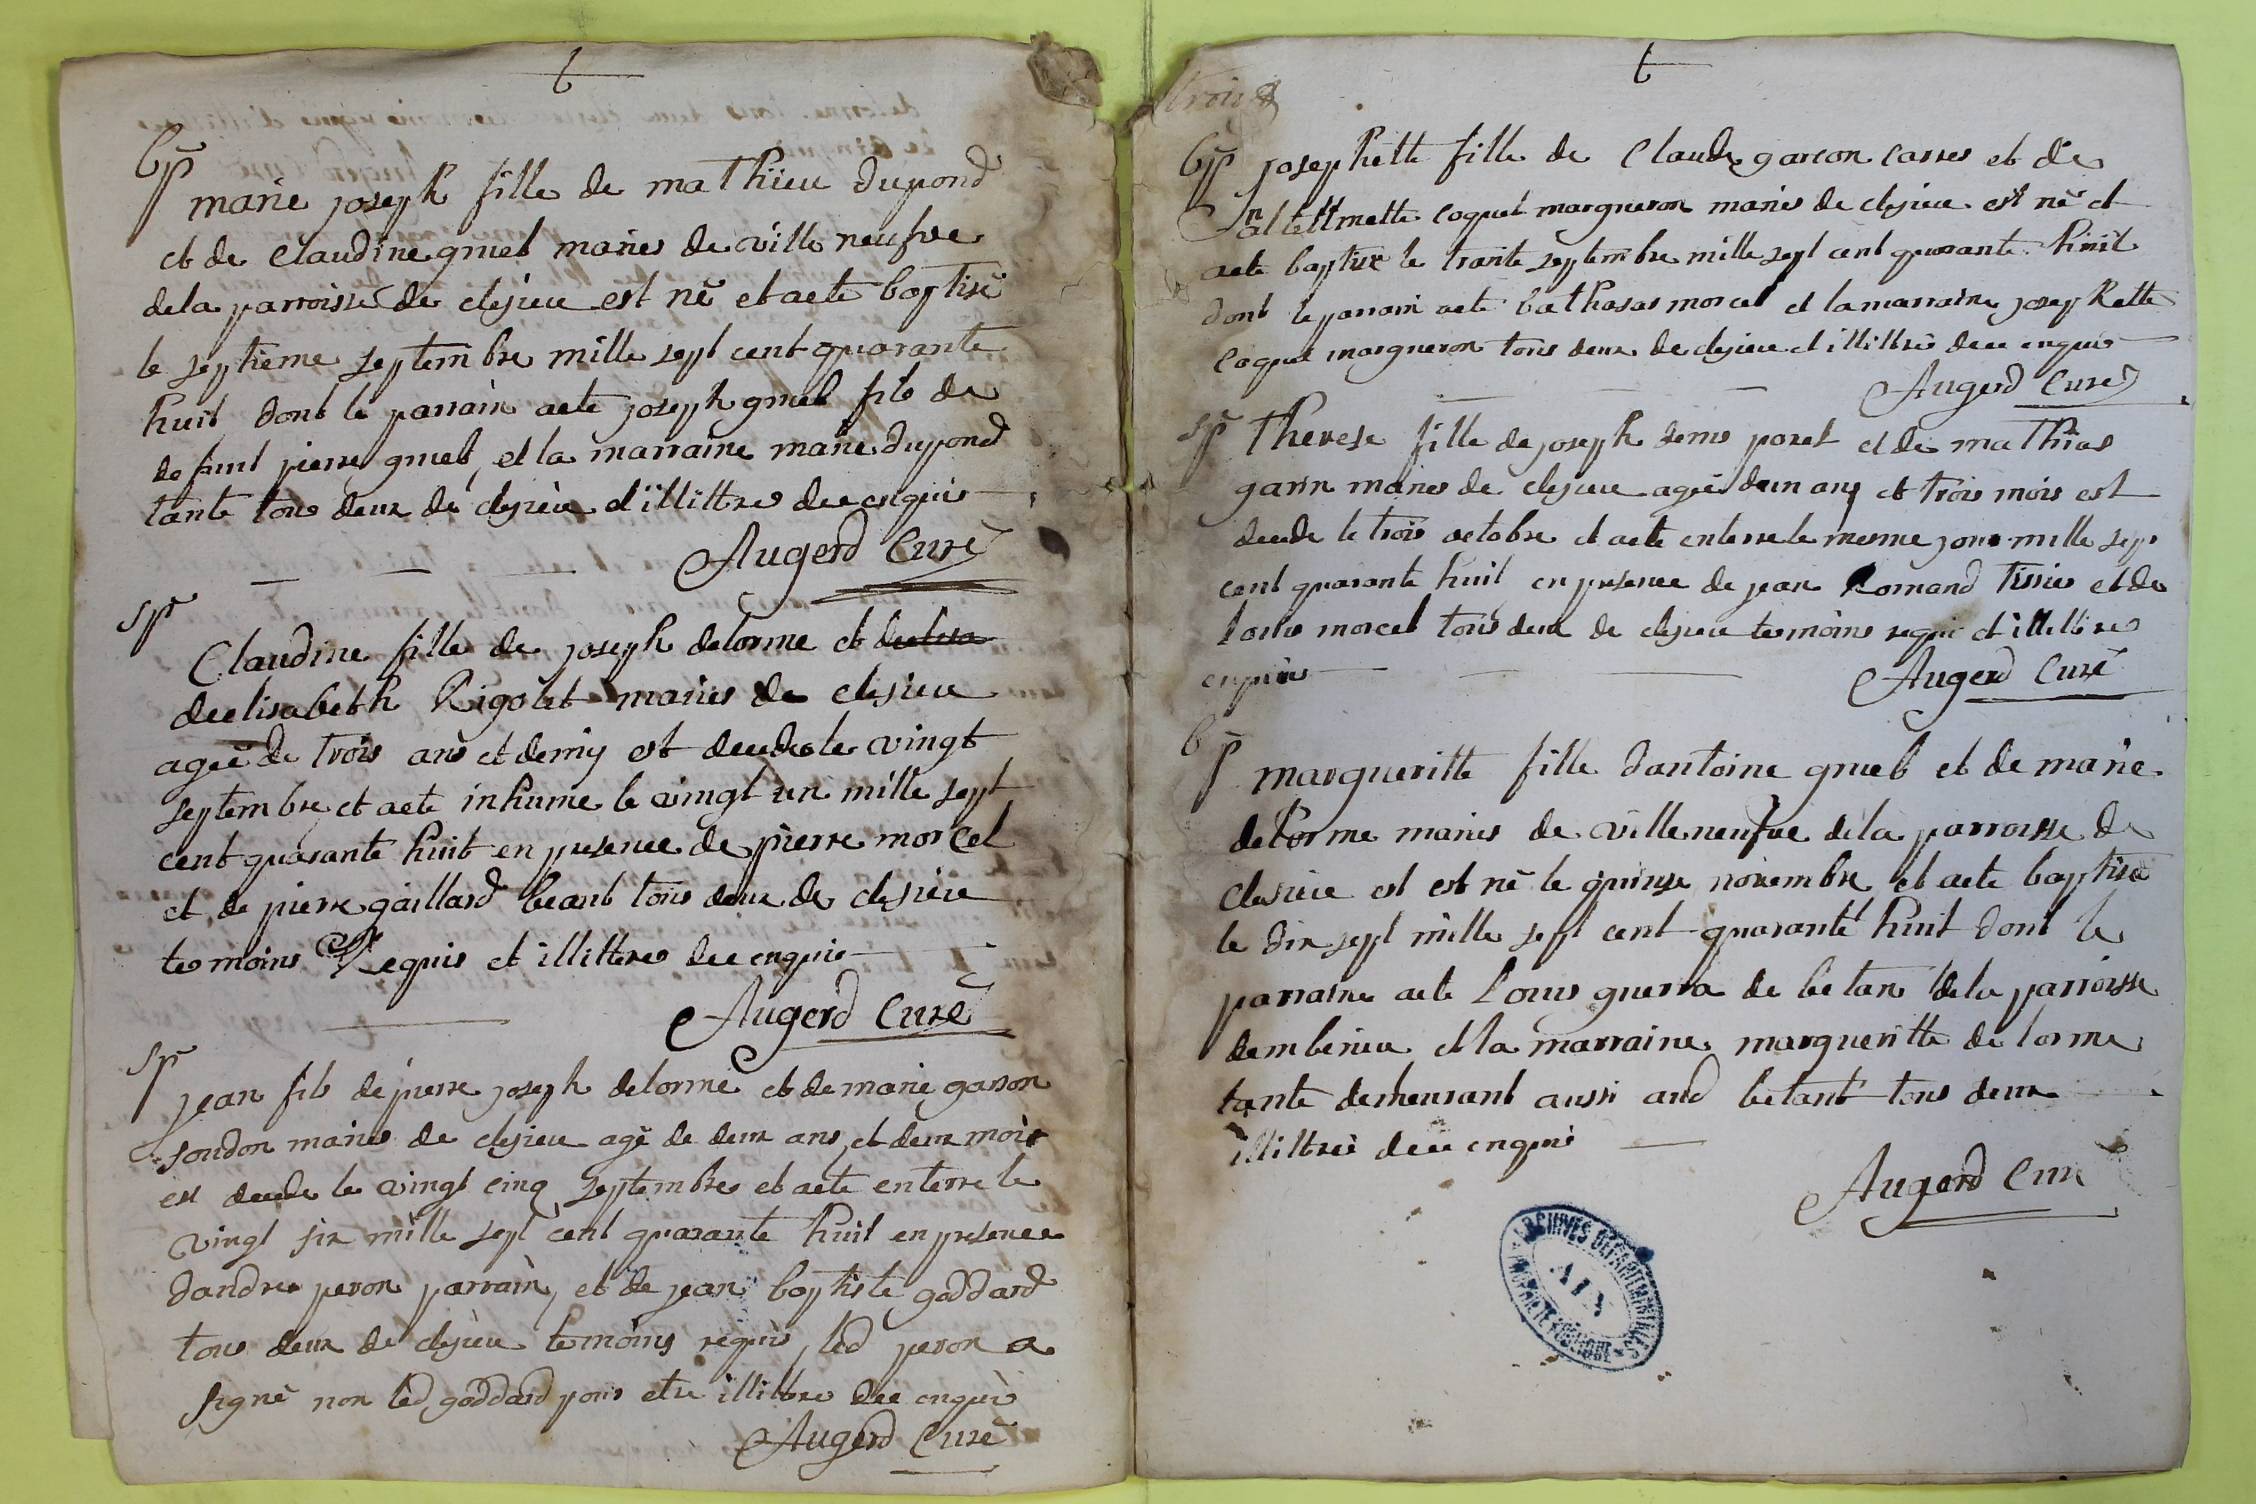 t
bp
marie joseph fille de mathieu dupond
et de claudine gruel mariés de ville neufve
de la parroisse de clesieu est né et a ete baptisé
le septieme septembre mille sept cent quarante
huit dont le parrain a ete joseph gruel fils de
defunt pierre gruel et la marraine marie dupond
tante tous deux de clesieu et illittres de ce enquis
Augerd Curé
sp
Claudine fille de joseph delorme et
de elisabeth Rigolet mariés de clesieu
agée de trois ans et demy est decede le vingt
septembre et a ete inhume le vingt un mille sept
cent quarante huit en presence de pierre morcel
et de pierre gaillard beant tous deux de clesieu
temoins Requis et illittres de ce enquis
Augerd Curé
sp
jean fils de pierre joseph delorme et de marie garson
soudon mariés de clesieu agé de deux ans et deux mois
est decede le vingt cinq septembre et a ete enterre le
vingt six mille sept cent quarante huit en presence
dandre peron parrain, et de jean baptiste goddard
tous deux de clesieu temoins requis, led peron a
signé non led goddard pour etre illittre de ce enquis
Augerd Curé
t
trois
bp josephette fille de Claude garcon carres et de
coquet margueron mariés de clesieu est né et
a ete baptisé le trante septembre mille sept cent quarante huit
dont le parrain a ete balthasar morcel et la marraine josephette
coquet margueron tous deux de clesieu et illittrés de ce enquis
Augerd Curé
sp therese fille de joseph poret et de mathias
garin mariés de clesieu agée dun ans et trois mois est
decede le trois octobre et a ete enterre le mesme jour mille sept
cent quarante huit en presence de jean Romand tissier et de
louis morcel tous deux de clesieu temoins requis et illittres
enquis
Augerd Curé
bp
margueritte fille dantoine gruel et de marie
delorme mariés de villeneufve de la parroisse de
clesieu est est né le quinze novembre et a ete baptisé
le dix sept mille sept cent quarante huit dont le
parraine a ete louis guerra de betan de la parroisse
dembérieu et la marraine margueritte de lorme
tante demeurant aussi aud betant tous deux
illittrés de ce enquis
Augerd Curé
ARCHIVES DEPARTEMENTALES
AIN